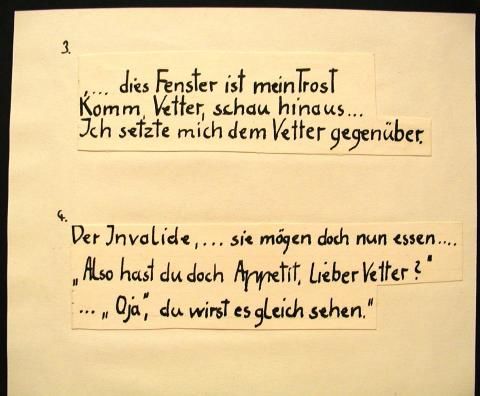 3.
„... dies Fenster ist mein Trost
Komm, Vetter, schau hinaus...
Ich setzte mich dem Vetter gegenüber.
4.
Der Invalide,... sie mögen doch nun essen....
„Also hast du doch Appetit, Lieber Vetter?"
... „Oja", du wirst es gleich sehen."